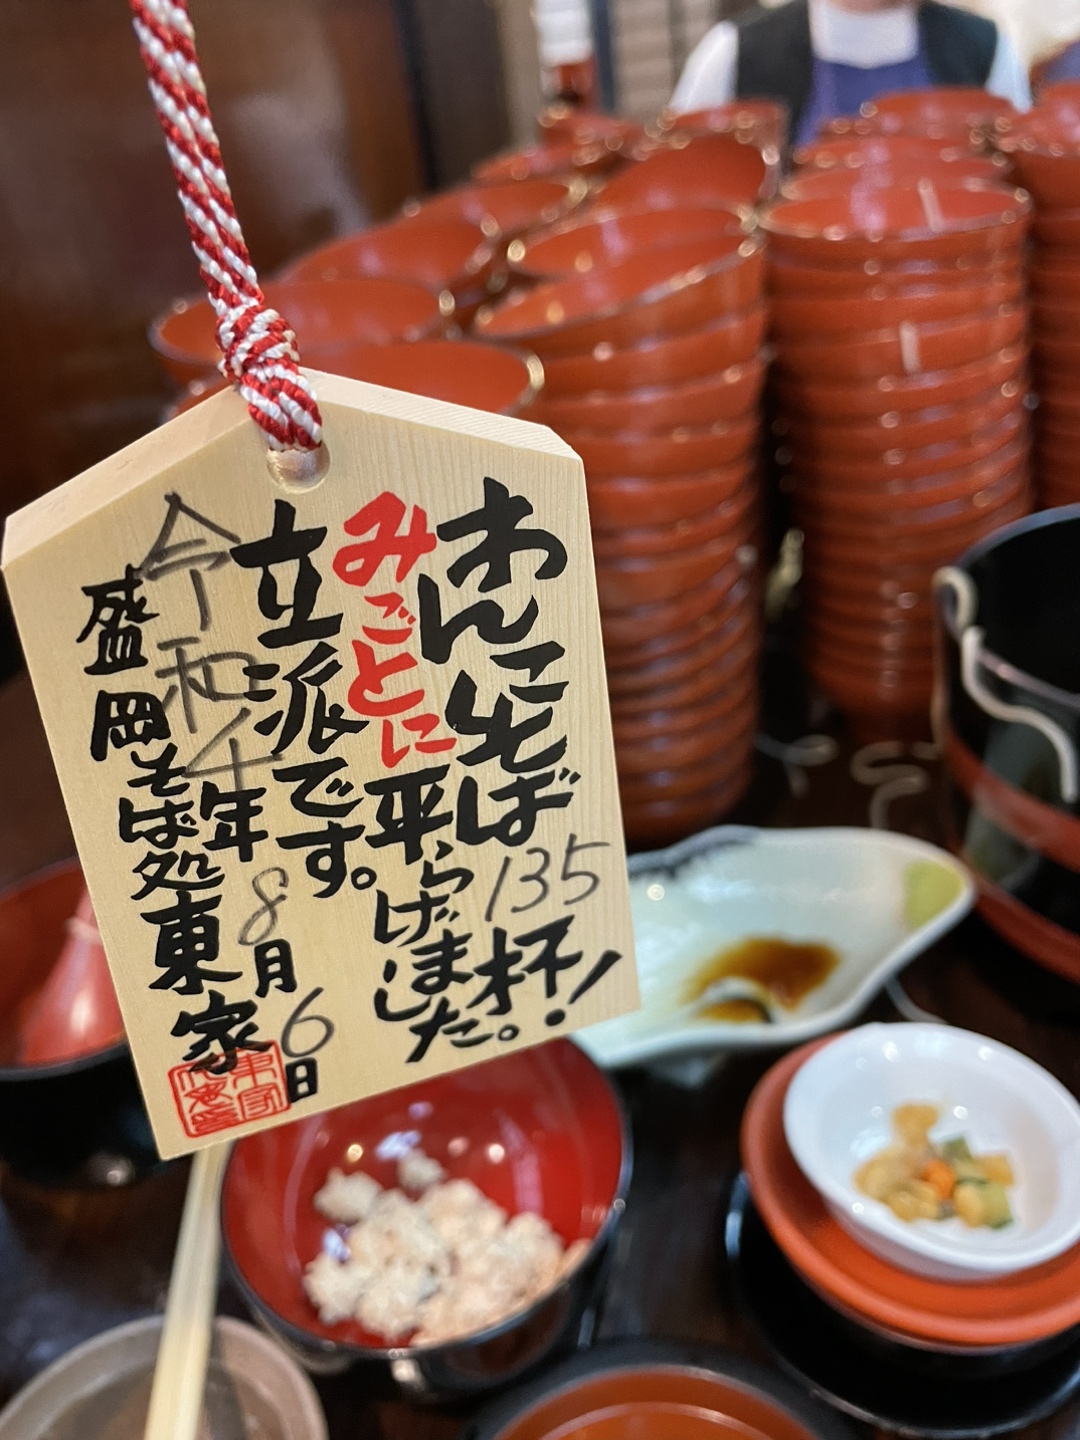 わんこそば135杯!
みごとに平らげました。
立派です。
令和4年8月6日
盛岡そば処東家